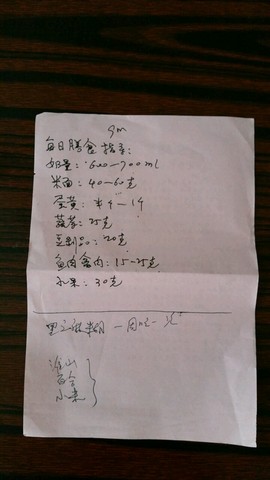 9m
每日膳食指导:
奶量: 600-700ml
米面: 40-60克
蛋黄:
蔬菜: 25克
豆制品: 20克
鱼肉禽肉: 15-25克
水果: 30克
黑芝麻糊 一周吃一
淮山
小米